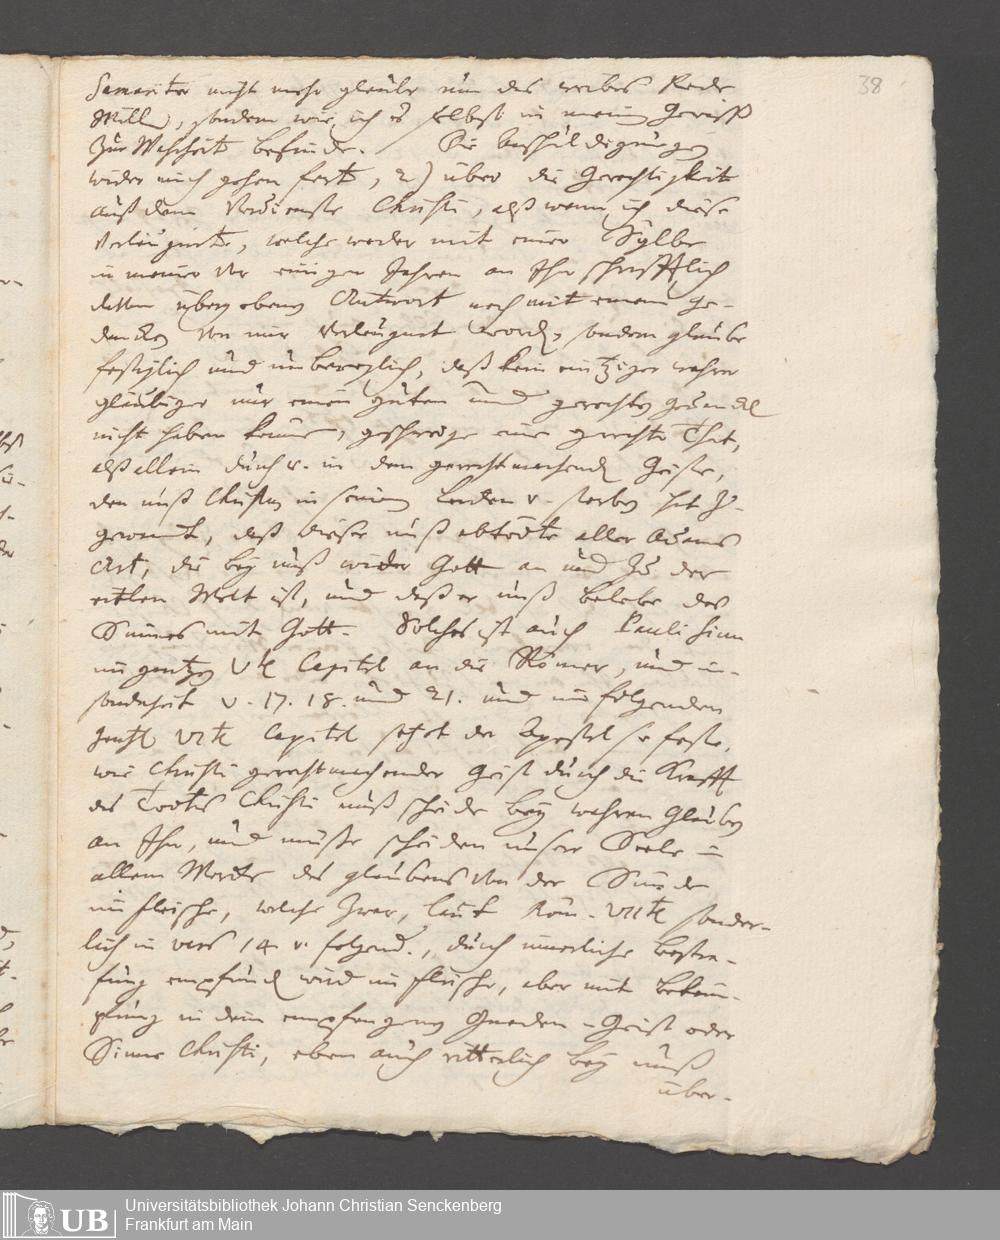 38
Samariter nicht mehr glaube um des weibes Rede
Willen, sondern wie ich es selbst in meinem Gewiss
Zur Wahrheit befinde. Die Beschuldigungen
wider mich gehen fort, 2) über die Gerechtigkeit
auß dem Verdienste Christi, alß wenn ich diese
verläugnete, welche weder mit einer Sylbe
in meiner vor einigen Jahren an Ihn schrifftlich
davon übergebenen Antwort noch mit einem ge-
dancken von mir verläugnet worden, sondern glaube
festiglich und unbeweglich, daß kein eintziger wahrer
gläubiger nur einen guten und gerechten gedancken
nicht haben könne, geschweige eine gerechte That,
alß allein durch u. in dem gerechtmachenden Geiste,
den unß Christus in seinem Leiden u. sterben hat
daß dieser unß abtödte aller Adams
Art, die bey unß wider Gott an und Zu der
eitlen Welt ist, und daß er unß belebe des
Sinnes mit Gott. Solches ist auch Pauli Sinn
im gantzen Vten Capitel an die Römer, und in-
sonderheit v. 17. 18. und 21. und im folgenden
gantzen VIten Capitel setzet der Apostel feste,
wie Christi gerechtmachender Geist durch die Krafft
des Todtes Christi unß scheide bey wahrem Glauben
an Ihn, und müsse scheiden unsere Seele in
allem Wercke des glaubens von der Sünde
im fleische, welche zwar, laut Röm. VIIten sonder-
lich in vers 14 u. folgend., durch innerliche bestra-
fung empfunden wird im fleische, aber mit bekäm-
pfung in dem empfangenen Gnaden-Geist oder
Sinne Christi, eben auch ritterlich bey unß
über-
Universitätsbibliothek Johann Christian Senckenberg
Frankfurt am Main
UB